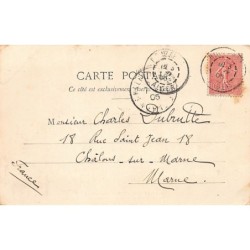 CARTE POSTALE
Ce côté est exclusivement
Monsieur Charles Dubrulle
18 Rue Saint Jean 18
Châlons - sur - Marne
Marne
(France)